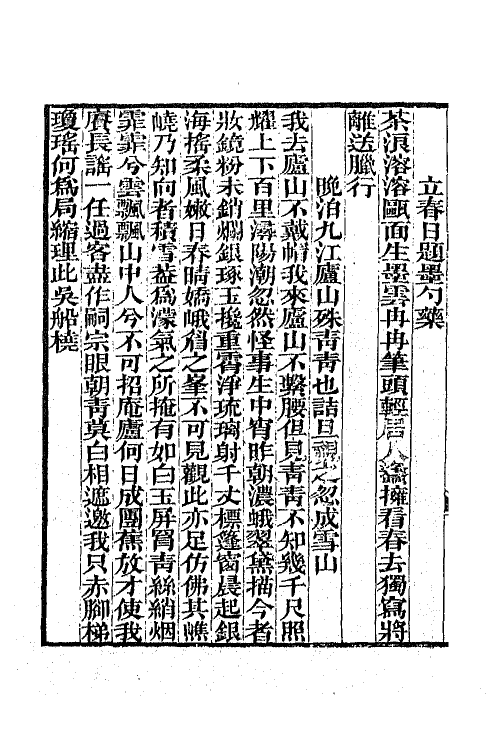 立春日題墨勺藥
茶浪溶溶甌面生墨雲冉冉筆頭輕居人盡擁看春去獨寫將
離送臘行
晚泊九江廬山殊靑靑也詰旦視之忽成雪山
我去廬山不戴帽我來廬山不繫腰但見靑靑不知幾千尺照
耀上下百里潯陽潮忽然怪事生中宵昨朝濃蛾翠黛描今者
妝鏡粉未銷爛銀琢玉攙重霄淨琉璃射千丈標篷窗晨起銀
海搖柔風嫩日春晴嬌峨眉之峯不可見觀此亦足仿佛其嶕
嶢乃知向者積雪蓋爲濛氣之所掩有如白玉屛冐靑絲綃烟
霏霏兮雲飄飄山中人兮不可招庵廬何日成團蕉放才使我
賡長謠一任過客盡作嗣宗眼朝靑莫白相遮邀我只赤腳梯
瓊瑤何爲局縮理此吳船橈